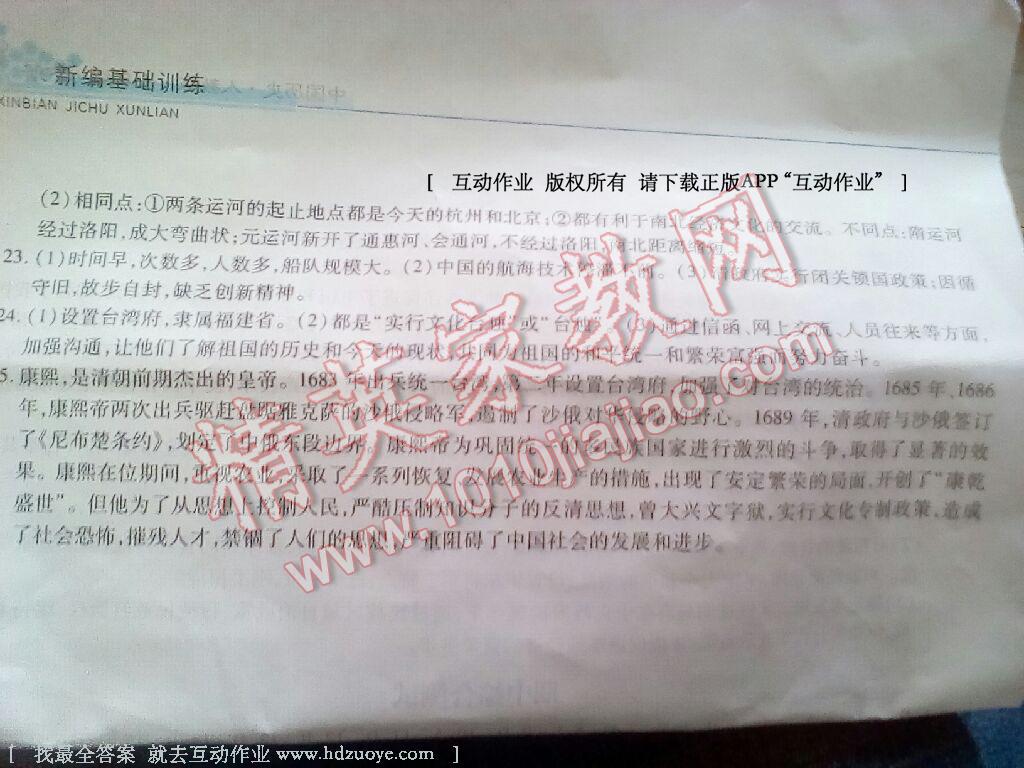 新编基础训练
XINBIAN JICHU XUNLIAN
[ 互动作业 版权所有 请下载正版APP“互动作业” ]
(2)相同点:①两条运河的起止地点都是今天的杭州和北京;②都有利于南北经济文化的交流。不同点:隋运河
经过洛阳,成大弯曲状;元运河新开了通惠河、会通河,不经过洛阳,南北距离缩短。
23. (1)时间早,次数多,人数多,船队规模大。(2)中国的航海技术 (3)清政府实行闭关锁国政策;因循
守旧,故步自封,缺乏创新精神。
24. (1)设置台湾府,隶属福建省。(2)都是“实行文化 ”或“台 (3)通过信函、网上交流、人员往来等方面,
加强沟通,让他们了解祖国的历史和今天的现状,共同为祖国的和平统一和繁荣富强而努力奋斗。
5. 康熙,是清朝前期杰出的皇帝。1683年出兵统一台湾,第二年设置台湾府,加强了对台湾的统治。1685年、1686
年,康熙帝两次出兵驱赶盘踞雅克萨的沙俄侵略军,遏制了沙俄对外侵略的野心。1689年,清政府与沙俄签订
了《尼布楚条约》,划定了中俄东段边界。康熙帝为巩固统一的多民族国家进行激烈的斗争,取得了显著的效
果。康熙在位期间,重视农业,采取了一系列恢复、发展农业生产的措施,出现了安定繁荣的局面,开创了“康乾
盛世”。但他为了从思想上控制人民,严酷压制知识分子的反清思想,曾大兴文字狱,实行文化专制政策,造成
了社会恐怖,摧残人才,禁锢了人们的思想,严重阻碍了中国社会的发展和进步。
精英家教网
www.1010jiajiao.com
[ 找最全答案 就去互动作业 www.hdzuoye.com ]